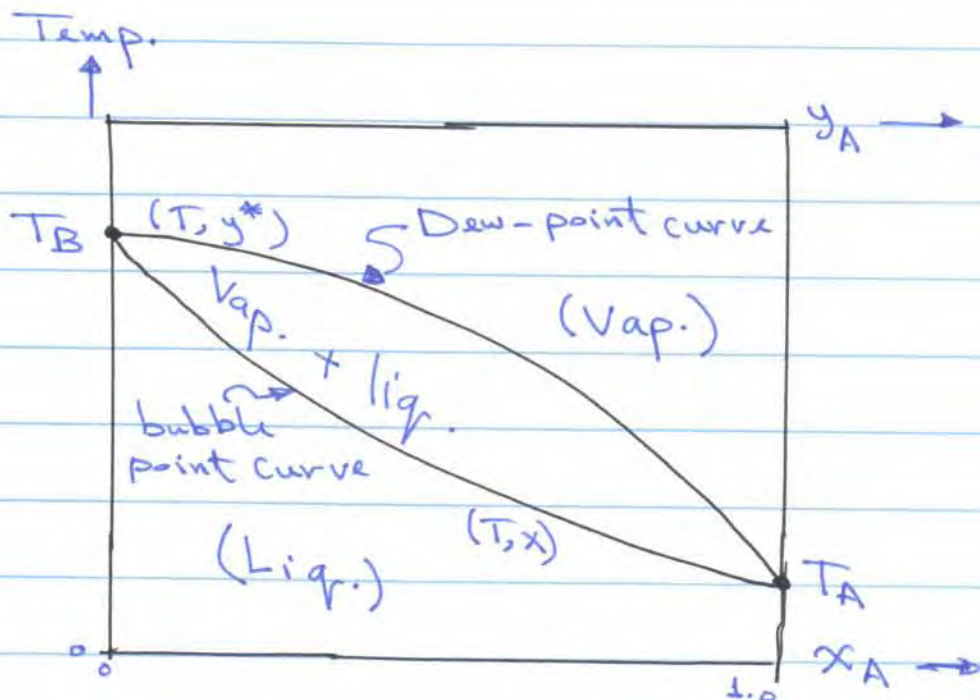 Temp.
y_A
T_B
(T, y*)
Dew-point curve
Vap. + liq.
(Vap.)
bubble
point curve
(T, x)
(Liq.)
T_A
0
0
1.0
x_A